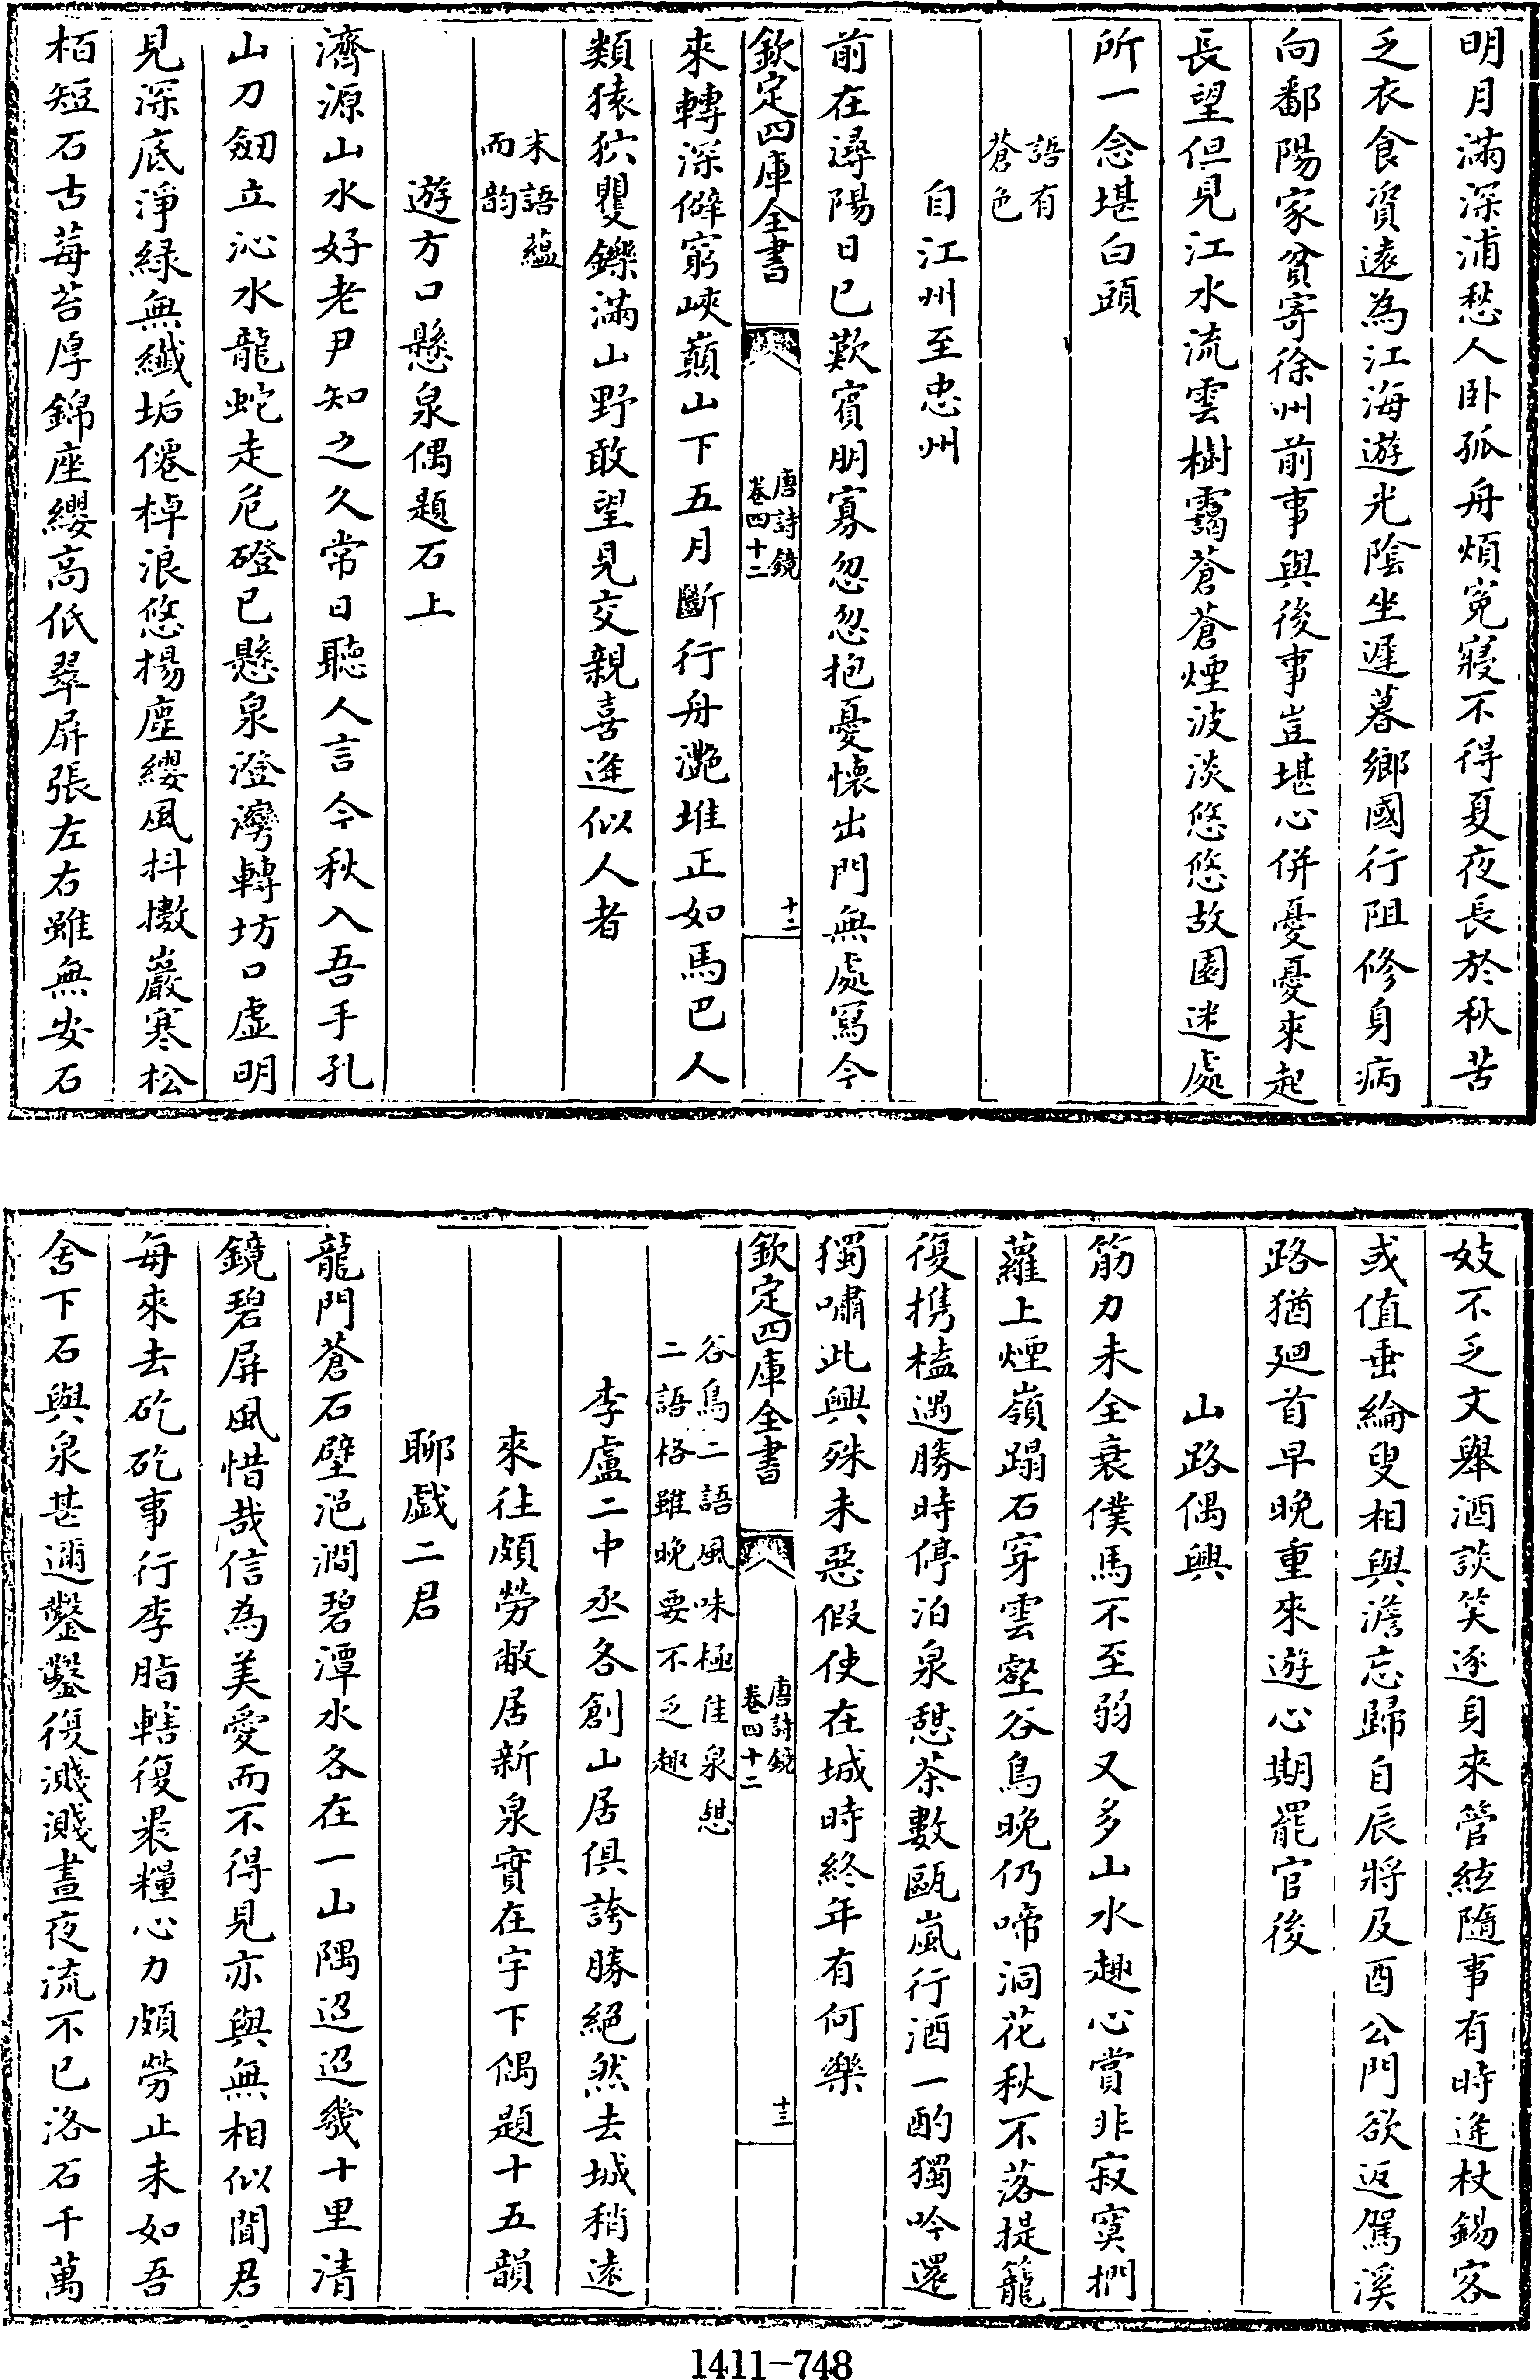 明月滿深浦愁人卧孤舟煩寃寢不得夏夜長於秋苦
乏衣食資逺為江海遊光陰坐遲暮鄉國行阻修身病
向鄱陽家貧寄徐州前事與後事豈堪心併憂憂來起
長望但見江水流雲樹靄蒼蒼煙波淡悠悠故園迷處
所一念堪白頭
語有
蒼色
自江州至忠州
前在潯陽日已歎賓朋寡忽忽抱憂懷出門無處寫今
欽定四庫全書
唐詩鏡
卷四十二
十二
來轉深僻窮峽巔山下五月斷行舟灔堆正如馬巴人
類猿狖矍鑠滿山野敢望見交親喜逢似人者
末語蘊
而韵
遊方口懸泉偶題石上
濟源山水好老尹知之久常日聽人言今秋入吾手孔
山刀劒立沁水龍蛇走危磴已懸泉澄灣轉坊口虚明
見深底淨緑無纎垢僊棹浪悠揚塵纓風抖擻巖寒松
栢短石古莓苔厚錦座纓高低翠屏張左右雖無安石
妓不乏文舉酒談笑逐身來管絃隨事有時逢杖錫客
或值垂綸叟相與澹忘歸自辰將及酉公門欲返駕溪
路猶廻首早晚重來遊心期罷官後
山路偶興
筋力未全衰僕馬不至弱又多山水趣心賞非寂寞捫
蘿上煙嶺蹋石穿雲壑谷鳥晚仍啼洞花秋不落提籠
復㩗榼遇勝時停泊泉憇茶數甌嵐行酒一酌獨吟還
獨嘯此興殊未惡假使在城時終年有何樂
欽定四庫全書
唐詩鏡
卷四十二
十三
谷鳥二語風味極佳泉憇
二語格雖晚要不乏趣
李盧二中丞各創山居俱誇勝絕然去城稍逺
來往頗勞敝居新泉實在宇下偶題十五韻
聊戯二君
龍門蒼石壁浥澗碧潭水各在一山隅迢迢幾十里清
鏡碧屏風惜哉信為美愛而不得見亦與無相似聞君
每來去矻矻事行李脂轄復裹糧心力頗勞止未如吾
舍下石與泉甚邇鑿鑿復濺濺晝夜流不已洛石千萬
1411-748